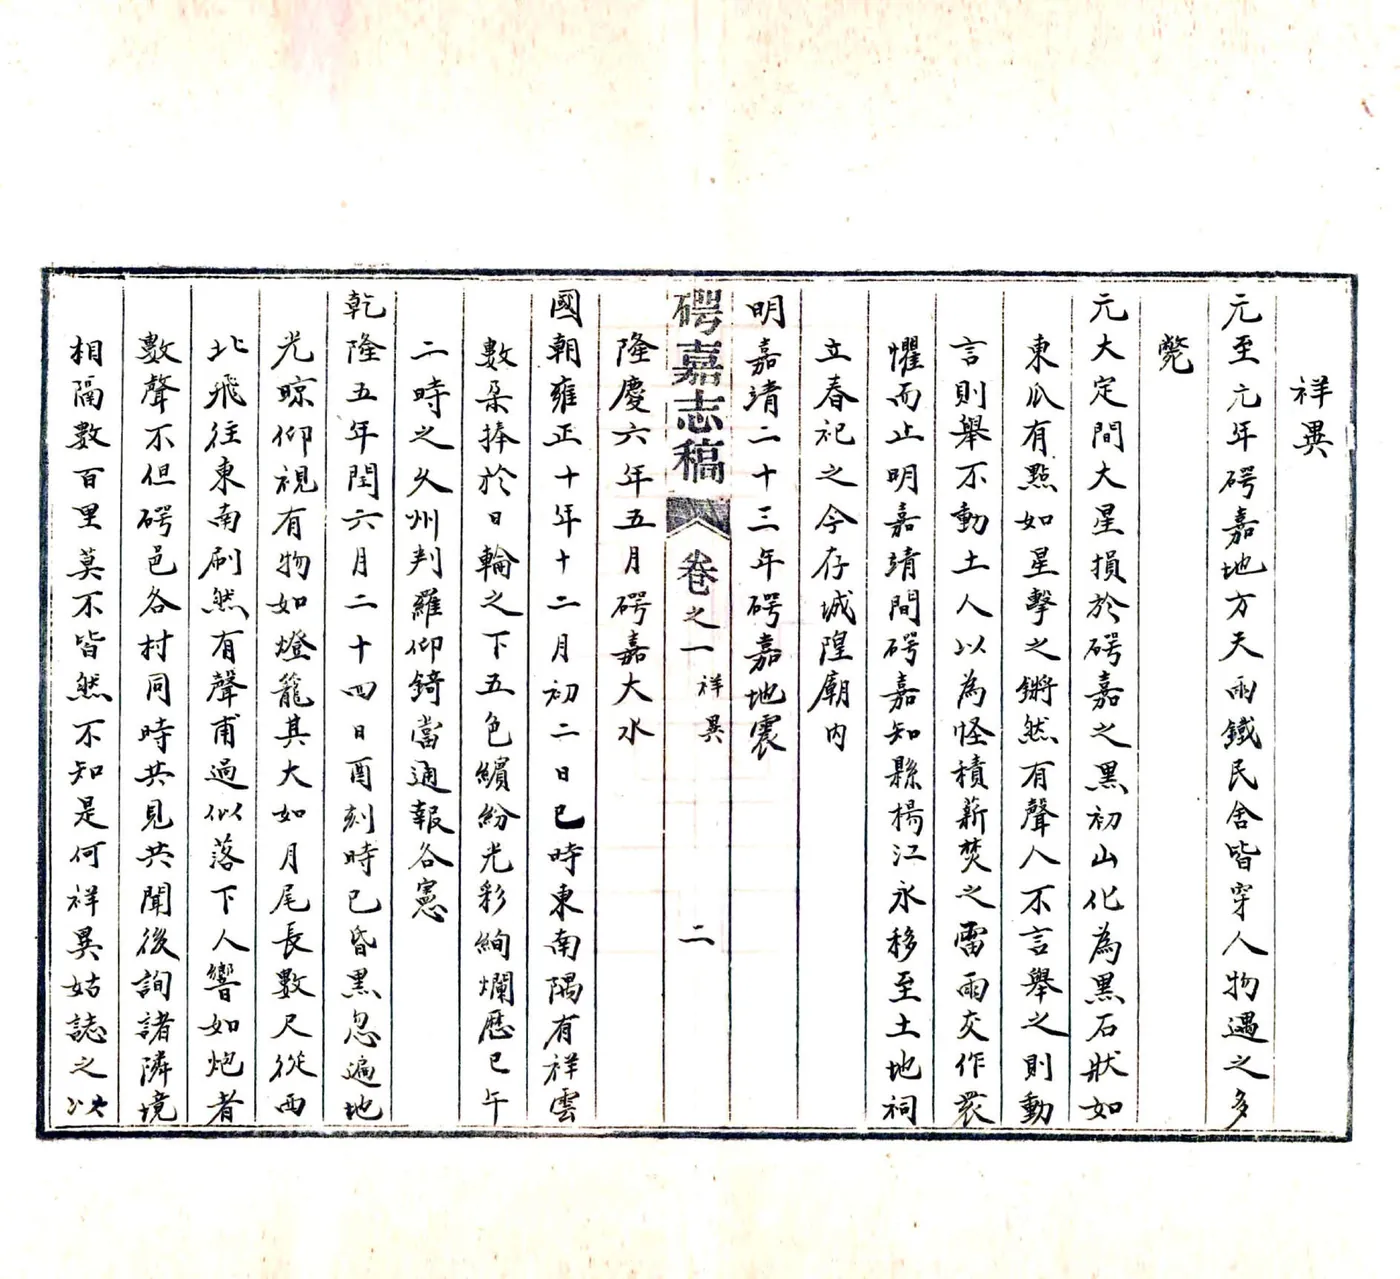 祥異
元至元年碍嘉地方天雨鐵民舍皆穿人物遇之多
斃
元大定間大星損於碍嘉之黑初山化為黑石狀如
東瓜有點如星擊之鏘然有聲人不言舉之則動
言則舉不動土人以為怪積薪焚之雷雨交作衆
懼而止明嘉靖間碍嘉知縣楊江永移至土地祠
立春祀之今存城隍廟內
明嘉靖二十三年碍嘉地震
隆慶六年五月碍嘉大水
碍嘉志稿 卷之一 祥異 二
國朝雍正十年十二月初二日巳時東南隅有祥雲
數朶捧於日輪之下五色繽紛光彩絢爛歷巳午
二時之久州判羅仰錡當通報各憲
乾隆五年閏六月二十四日酉刻時已昏黑忽遍地
光晾仰視有物如燈籠其大如月尾長數尺從西
北飛往東南刷然有聲甫過似落下人響如炮者
數聲不但碍邑各村同時共見共聞後詢諸隣境
相隔數百里莫不皆然不知是何祥異姑誌之以